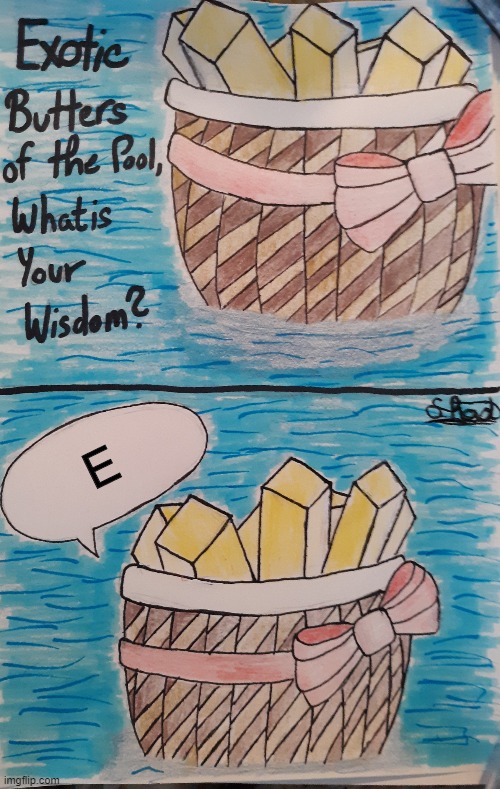 Exotic
Butters
of the Pool,
What is
Your
Wisdom?
E
imgflip.com